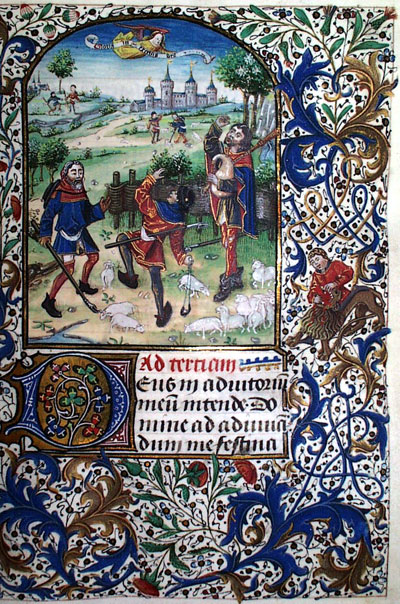 Ad tertiam
DEus in adiutoriū
meū intende. Do
mine ad adiuuā
dum me festina